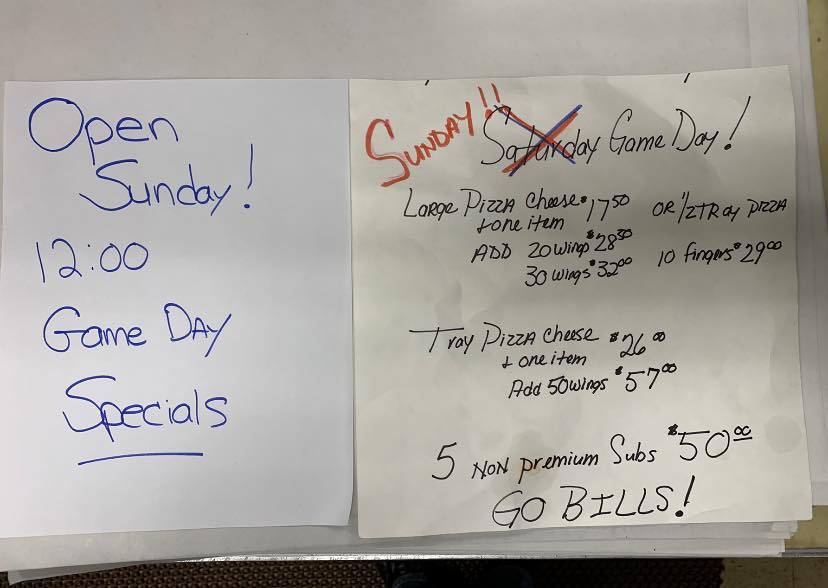 Open
Sunday!
12:00
Game Day
Specials
Sunday!! Saturday Game Day!
Large Pizza Cheese $17.50 or 1/2 Tray Pizza
+ one item
Add 20 wings $28.50 10 fingers $29.00
30 wings $32.00
Tray Pizza Cheese $26.00
+ one item
Add 50 wings $57.00
5 Non premium Subs $50.00
GO BILLS!